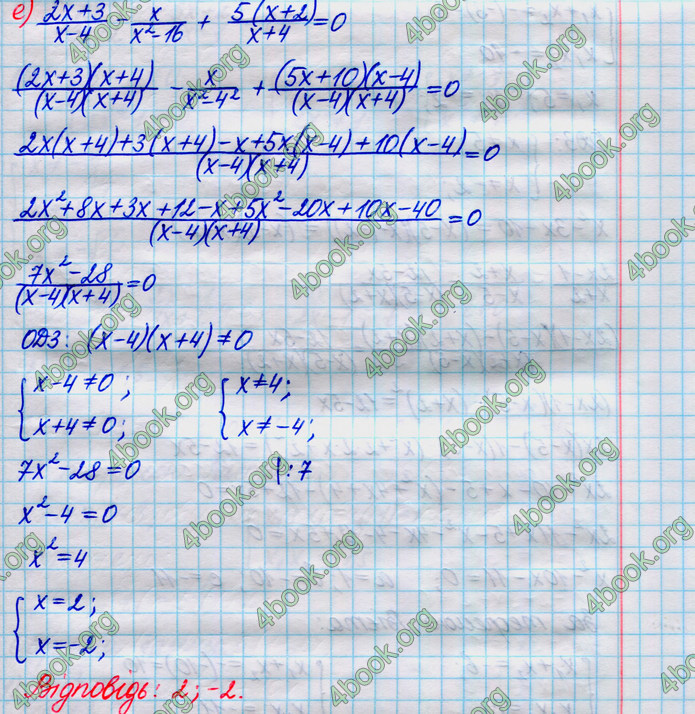 е) (2x+3)/(x-4) - x/(x²-16) + 5(x+2)/(x+4) = 0
(2x+3)(x+4)/((x-4)(x+4)) - x/(x²-4²) + (5x+10)(x-4)/((x-4)(x+4)) = 0
(2x(x+4)+3(x+4)-x+5x(x-4)+10(x-4))/((x-4)(x+4)) = 0
(2x²+8x+3x+12-x+5x²-20x+10x-40)/((x-4)(x+4)) = 0
(7x²-28)/((x-4)(x+4)) = 0
ОДЗ: (x-4)(x+4)≠0
{ x-4≠0; { x≠4;
{ x+4≠0; { x≠-4;
7x²-28=0 |:7
x²-4=0
x²=4
{ x=2;
{ x=-2;
Відповідь: 2; -2.
4book.org